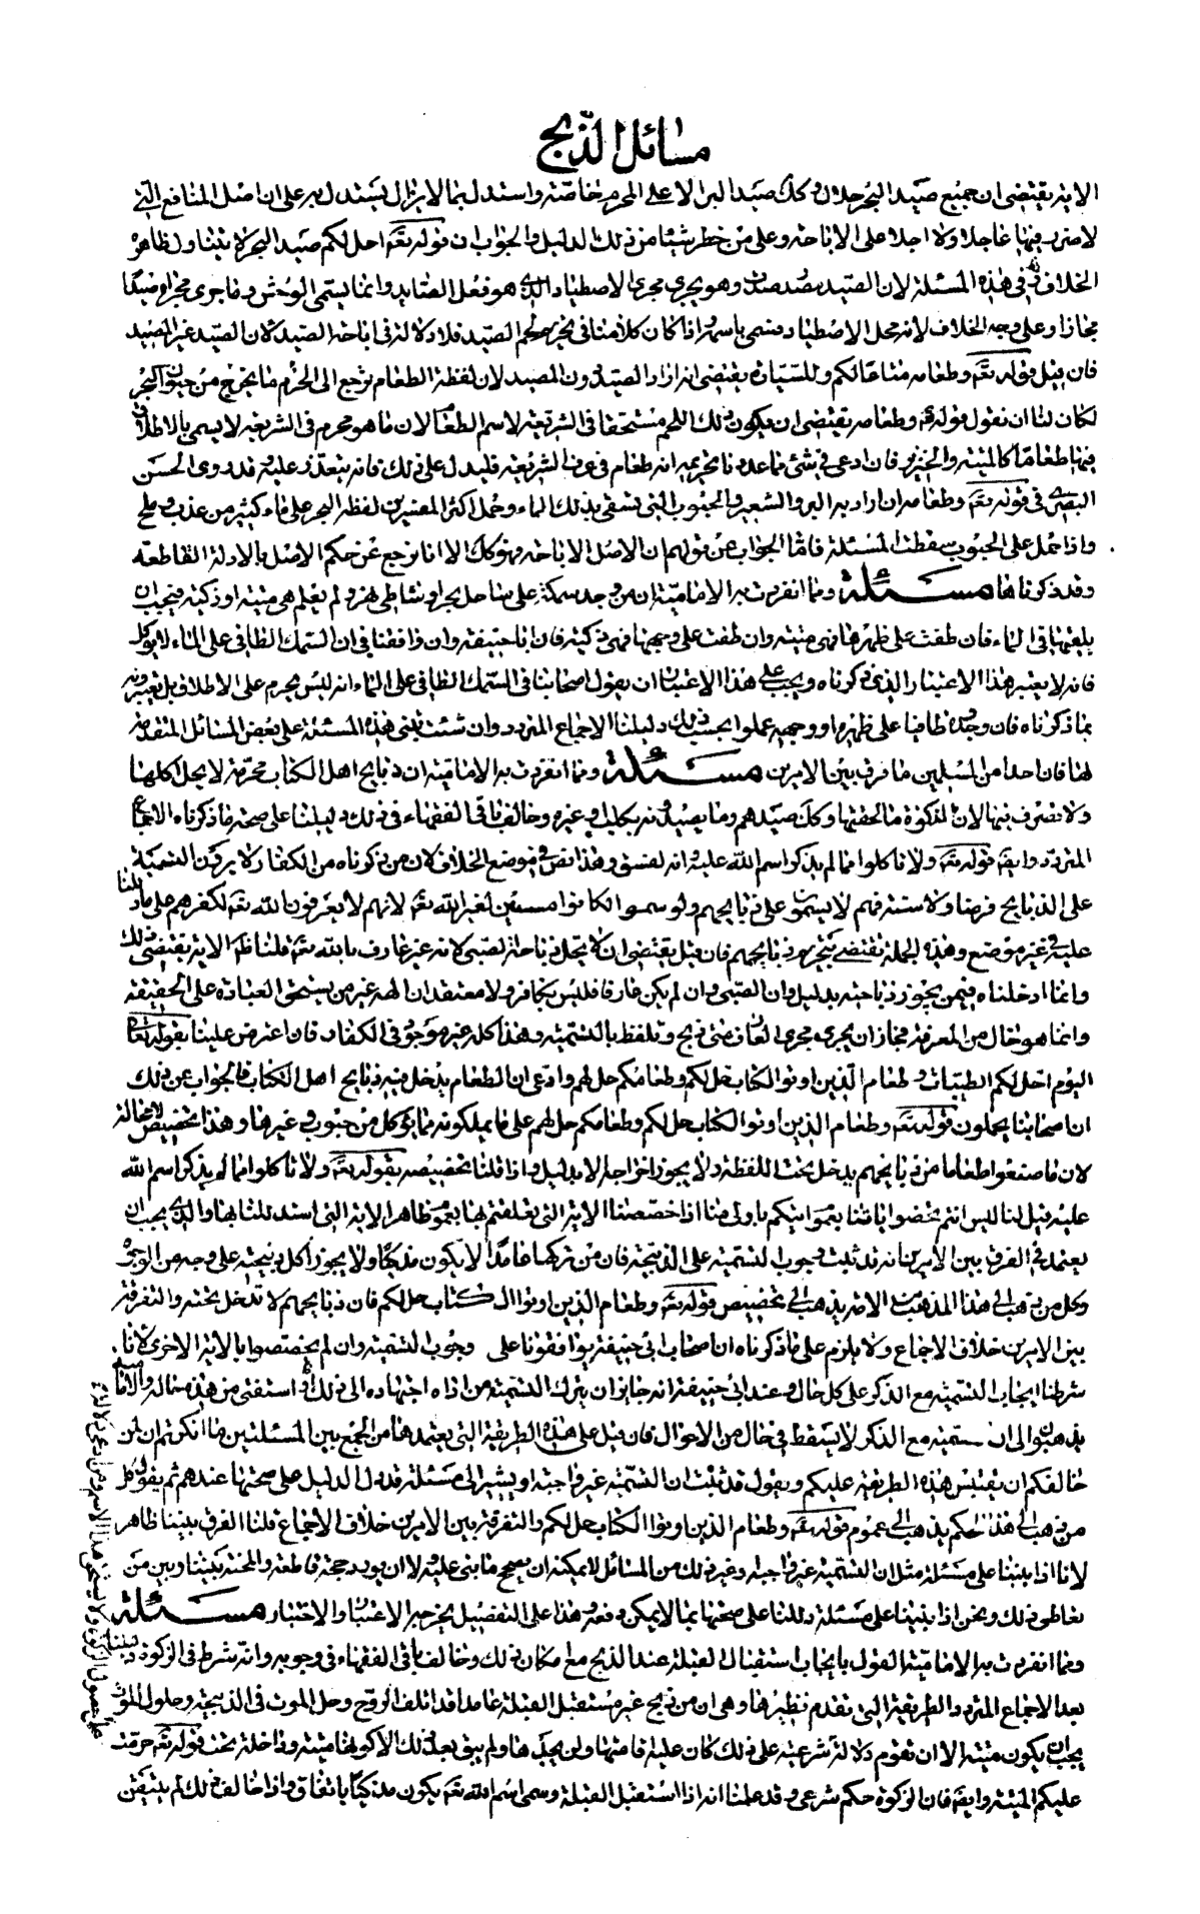 مسائل الذبح
الاية يقتضى ان جميع صيد البحر حلال وكك صيد البر الا على المحرم خاصة واستدل بما لا يزال يستدل به على ان اصل المنافع التى
لا ضرر فيها عاجلا ولا اجلا على الاباحة وعلى من خطر شيئا من ذلك الدليل والجواب ان قوله تعم احل لكم صيد البحر لا يتناول ظاهره
الخلاف فى هذه المسئلة لان الصيد مصدر صدت وهو يجرى مجرى الاصطياد الذى هو فعل الصائد وانما يسمى الوحش وما جرى مجراه صيدا
مجازا وعلى وجه الخلاف لانه محل الاصطياد فسمى باسمه واذا كان كلامنا فى تحريم لحم الصيد فلا دلالة فى اباحة الصيد لان الصيد غير المصيد
فان قيل قوله تعم وطعامه متاعا لكم وللسيارة يقتضى انه اراد الصيد دون المصيد لان لفظة الطعام ترجع الى الحرم ما يخرج من حيوان البحر
لكان لنا ان نقول قوله تعم وطعامه يقتضى ان يكون ذلك اللحم مستحقا فى الشريعة لاسم الطعام لان ما هو محرم فى الشريعة لا يسمى بالاطلاق
فيها طعاما كالميتة والخنزير فان ادعى فى شئ مما عددنا تحريمه انه طعام فى عرف الشريعة فليدل على ذلك فانه يتعذر عليه وقد روى الحسن
البصرى فى قوله تعم وطعامه ان اراد به البر والشعير والحبوب التى تسقى بذلك الماء وحمل اكثر المفسرين لفظة البحر على ماء كثير من عذب وملح
واذا حمل على الحبوب سقطت المسئلة فاما الجواب عن قولهم ان الاصل الاباحة فهو كك الا انا نرجع عن حكم الاصل بالادلة القاطعة
وقد ذكرناها مسئلة ومما انفردت به الامامية ان من وجد سمكة على ساحل بحر او شاطى نهر ولم يعلم هى ميتة او ذكية فيجب ان
يلقيها فى الماء فان طفت على ظهرها فهى ميتة وان طفت على وجهها فهى ذكية فان ابا حنيفة وان وافقنا فى ان السمك الطافى على الماء لا يؤكل
فانه لا يعتبر هذا الاعتبار الذى ذكرناه ويجب على هذا الاعتبار ان يقول اصحابنا فى السمك الطافى على الماء انه ليس بمحرم على الاطلاق بل يعتبرونه
بما ذكرناه فان وجدوه طافيا على ظهره او وجهه عملوا بحسب ذلك دليلنا الاجماع المتردد وان شئت تبنى هذه المسئلة على بعض المسائل المتقدمة
لها فان احدا من المسلمين ما فرق بين الامرين مسئلة ومما انفردت به الامامية ان ذبايح اهل الكتاب محرمة لا يحل اكلها
ولا تصرف فيها لان الذكوة ما لحقتها وكك صيدهم وما يصيدونه بكلب وغيره وخالف باقى الفقهاء فى ذلك دليلنا على صحة ما ذكرناه الاجماع
المتردد وايضا قوله تعم ولا تاكلوا مما لم يذكر اسم الله عليه وانه لفسق وهذا نص فى موضع الخلاف لان من ذكرناه من الكفار لا يرون التسمية
على الذبايح فرضا ولا سنة فهم لا يسمون على ذبايحهم ولو سموا لكانوا مسمين لغير الله تعم لانهم لا يعرفون الله تعم لكفرهم على ما دللنا
عليه فى غير موضع وهذه الجملة تقتضى تحريم ذبايحهم فان قيل يقتضى ان لا تحل ذباحة الصبى لانه غير عارف بالله تعم قلنا ظاهر الاية يقتضى ذلك
وانما ادخلناه فيمن يجوز ذباحته بدليل وان الصبى وان لم يكن عارفا فليس بكافر ولا معتقد ان الهه غير من يستحق العبادة على الحقيقة
وانما هو خال من المعرفة فجاز ان يجرى مجرى العارف متى ذبح وتلفظ بالتسمية وهذا كله غير موجود فى الكفار فان اعترض علينا بقوله تعالى
اليوم احل لكم الطيبات وطعام الذين اوتوا الكتاب حل لكم وطعامكم حل لهم وادعى ان الطعام يدخل فيه ذبايح اهل الكتاب فالجواب عن ذلك
ان اصحابنا يحملون قوله تعم وطعام الذين اوتوا الكتاب حل لكم وطعامكم حل لهم على ما يملكونه مما يؤكل من حبوب وغيرها وهذا تخصيص لا محالة
لان ما صنعوا طعاما من ذبايحهم يدخل تحت اللفظة ولا يجوز اخراجه الا بدليل واذا قلنا تخصيصه بقوله تعم ولا تاكلوا مما لم يذكر اسم الله
عليه قيل لنا ليس انتم تخصوا ايتنا بعموم ايتكم باولى منا اذا خصصنا الاية التى تعلقتم بها بعموم ظاهر الاية التى استدللنا بها والذى يجب ان
يعتمد فى الفرق بين الامرين انه قد ثبت وجوب التسمية على الذبيحة فان من تركها عامدا لا يكون مذكيا ولا يجوز اكل ذبيحته على وجه من الوجوه
وكل من ذهب الى هذا المذهب من الامة يذهب الى تخصيص قوله تعم وطعام الذين اوتوا الكتاب حل لكم فان ذبايحهم لا تدخل تحته والتفرقة
بين الامرين خلاف الاجماع ولا يلزم على ما ذكرناه ان اصحاب ابى حنيفة يوافقونا على وجوب التسمية وان لم يخصصوا بالاية الاخرى لانا
شرطنا ايجاب التسمية مع الذكر على كل حال وعند ابى حنيفة انه جايز ان يترك التسمية من اداه اجتهاده الى ذلك او استفتى من هذه حاله والامامية
يذهبون الى ان التسمية مع الذكر لا يسقط فى حال من الاحوال فان قيل على هذه الطريقة التى يعتمدها من الجمع بين المسئلتين ما انكرتم ان لمن
خالفكم ان يقتبس هذه الطريقة عليكم ويقول قد ثبت ان التسمية غير واجبة ويشير الى مسئلة قد دل الدليل على صحتها عندهم ثم يقول كل
من ذهب الى هذا الحكم يذهب الى عموم قوله تعم وطعام الذين اوتوا الكتاب حل لكم والتفرقة بين الامرين خلاف الاجماع قلنا الفرق بيننا ظاهر
لانا اذا بنينا على مسئلة مثل ان التسمية غير واجبة وغير ذلك من المسائل لا يمكنه ان يصحح ما بنى عليه ولا ان يورد حجة قاطعة والمحنة بيننا وبين من
تعاطى ذلك ونحن اذا بنينا على مسئلة دللنا على صحتها بما لا يمكن دفعه وهذا على التفصيل يخرجه الاعتبار والاختبار مسئلة
ومما انفردت به الامامية القول بايجاب استقبال القبلة عند الذبح مع امكان ذلك وخالف باقى الفقهاء فى وجوبه وانه شرط فى الزكوة دليلنا
بعد الاجماع المتردد الطريقة التى تقدم نظيرها وهى ان من ذبح غير مستقبل القبلة عامدا قد اتلف الروح وحل الموت فى الذبيحة وحلول الموت
يجب ان يكون ميتة الا ان تقوم دلالة شرعية على ذلك كان عليه اقامتها ولن يجدها ولم يبق بعد ذلك الا كونها ميتة وداخلة تحت قوله تعم حرمت
عليكم الميتة وايضا فان الزكوة حكم شرعى وقد علمنا انه اذا استقبل القبلة وسمى اسم الله تعم يكون مذكيا باتفاق واذا خالف ذلك لم يتيقن